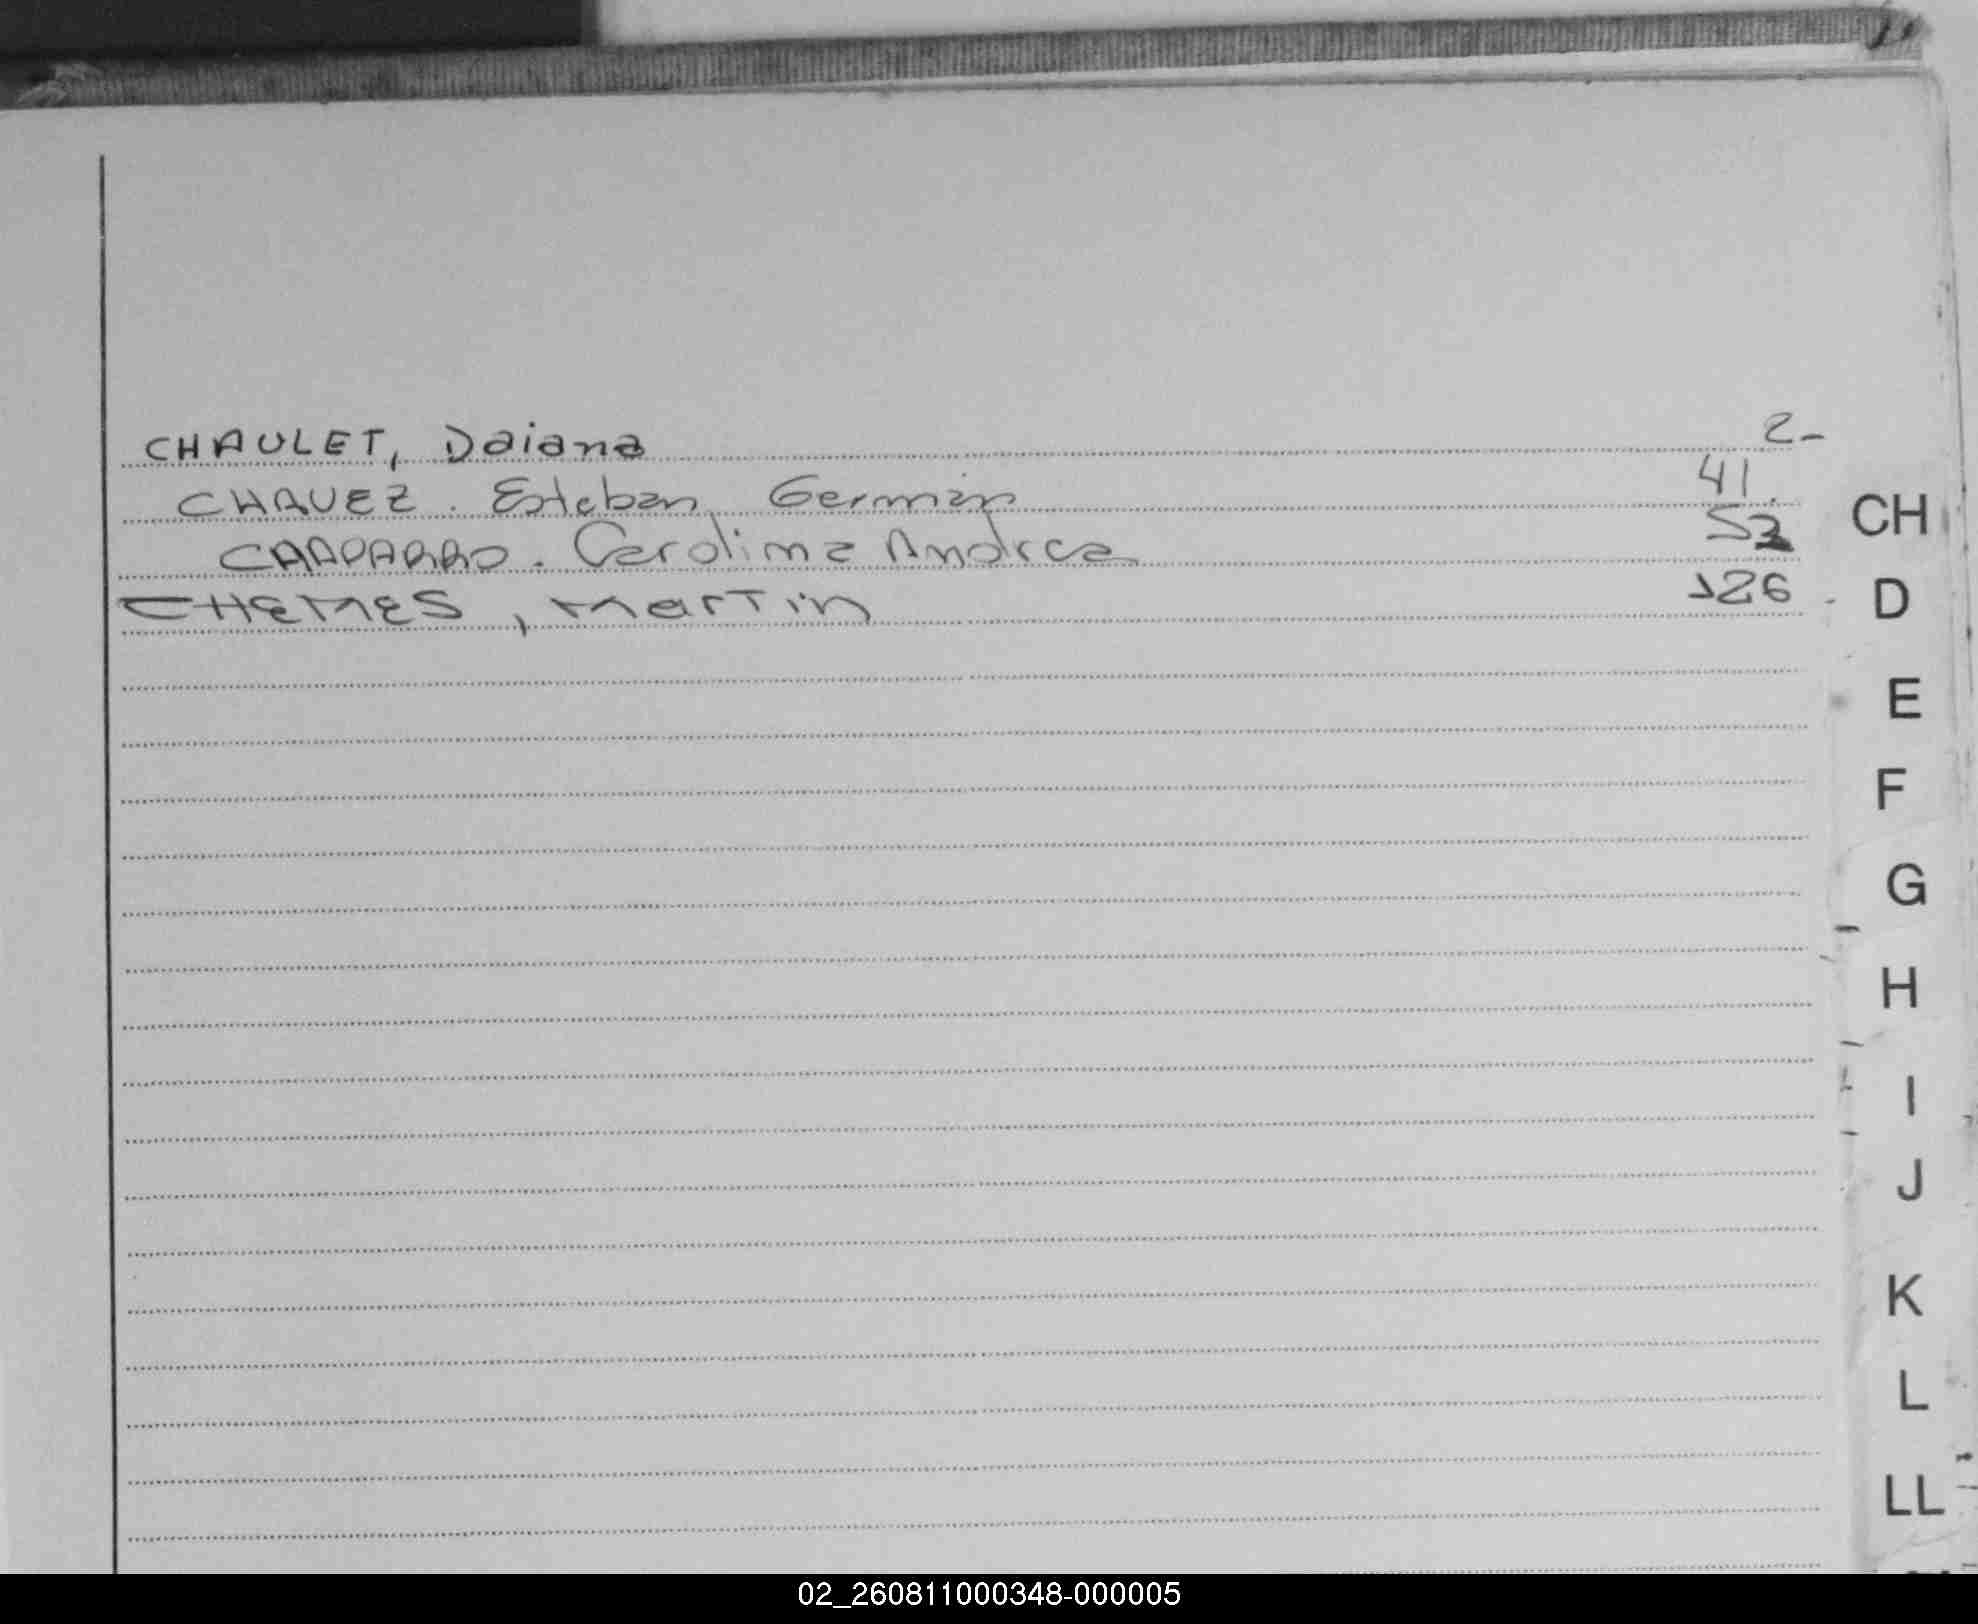 CHAULET, Daiana 2-
CHAVEZ. Esteban Germán 41.
CHAPARRO. Carolina Andrea 52
CHEMES, Martin 126
CH
D
E
F
G
H
I
J
K
L
LL
02_260811000348-000005